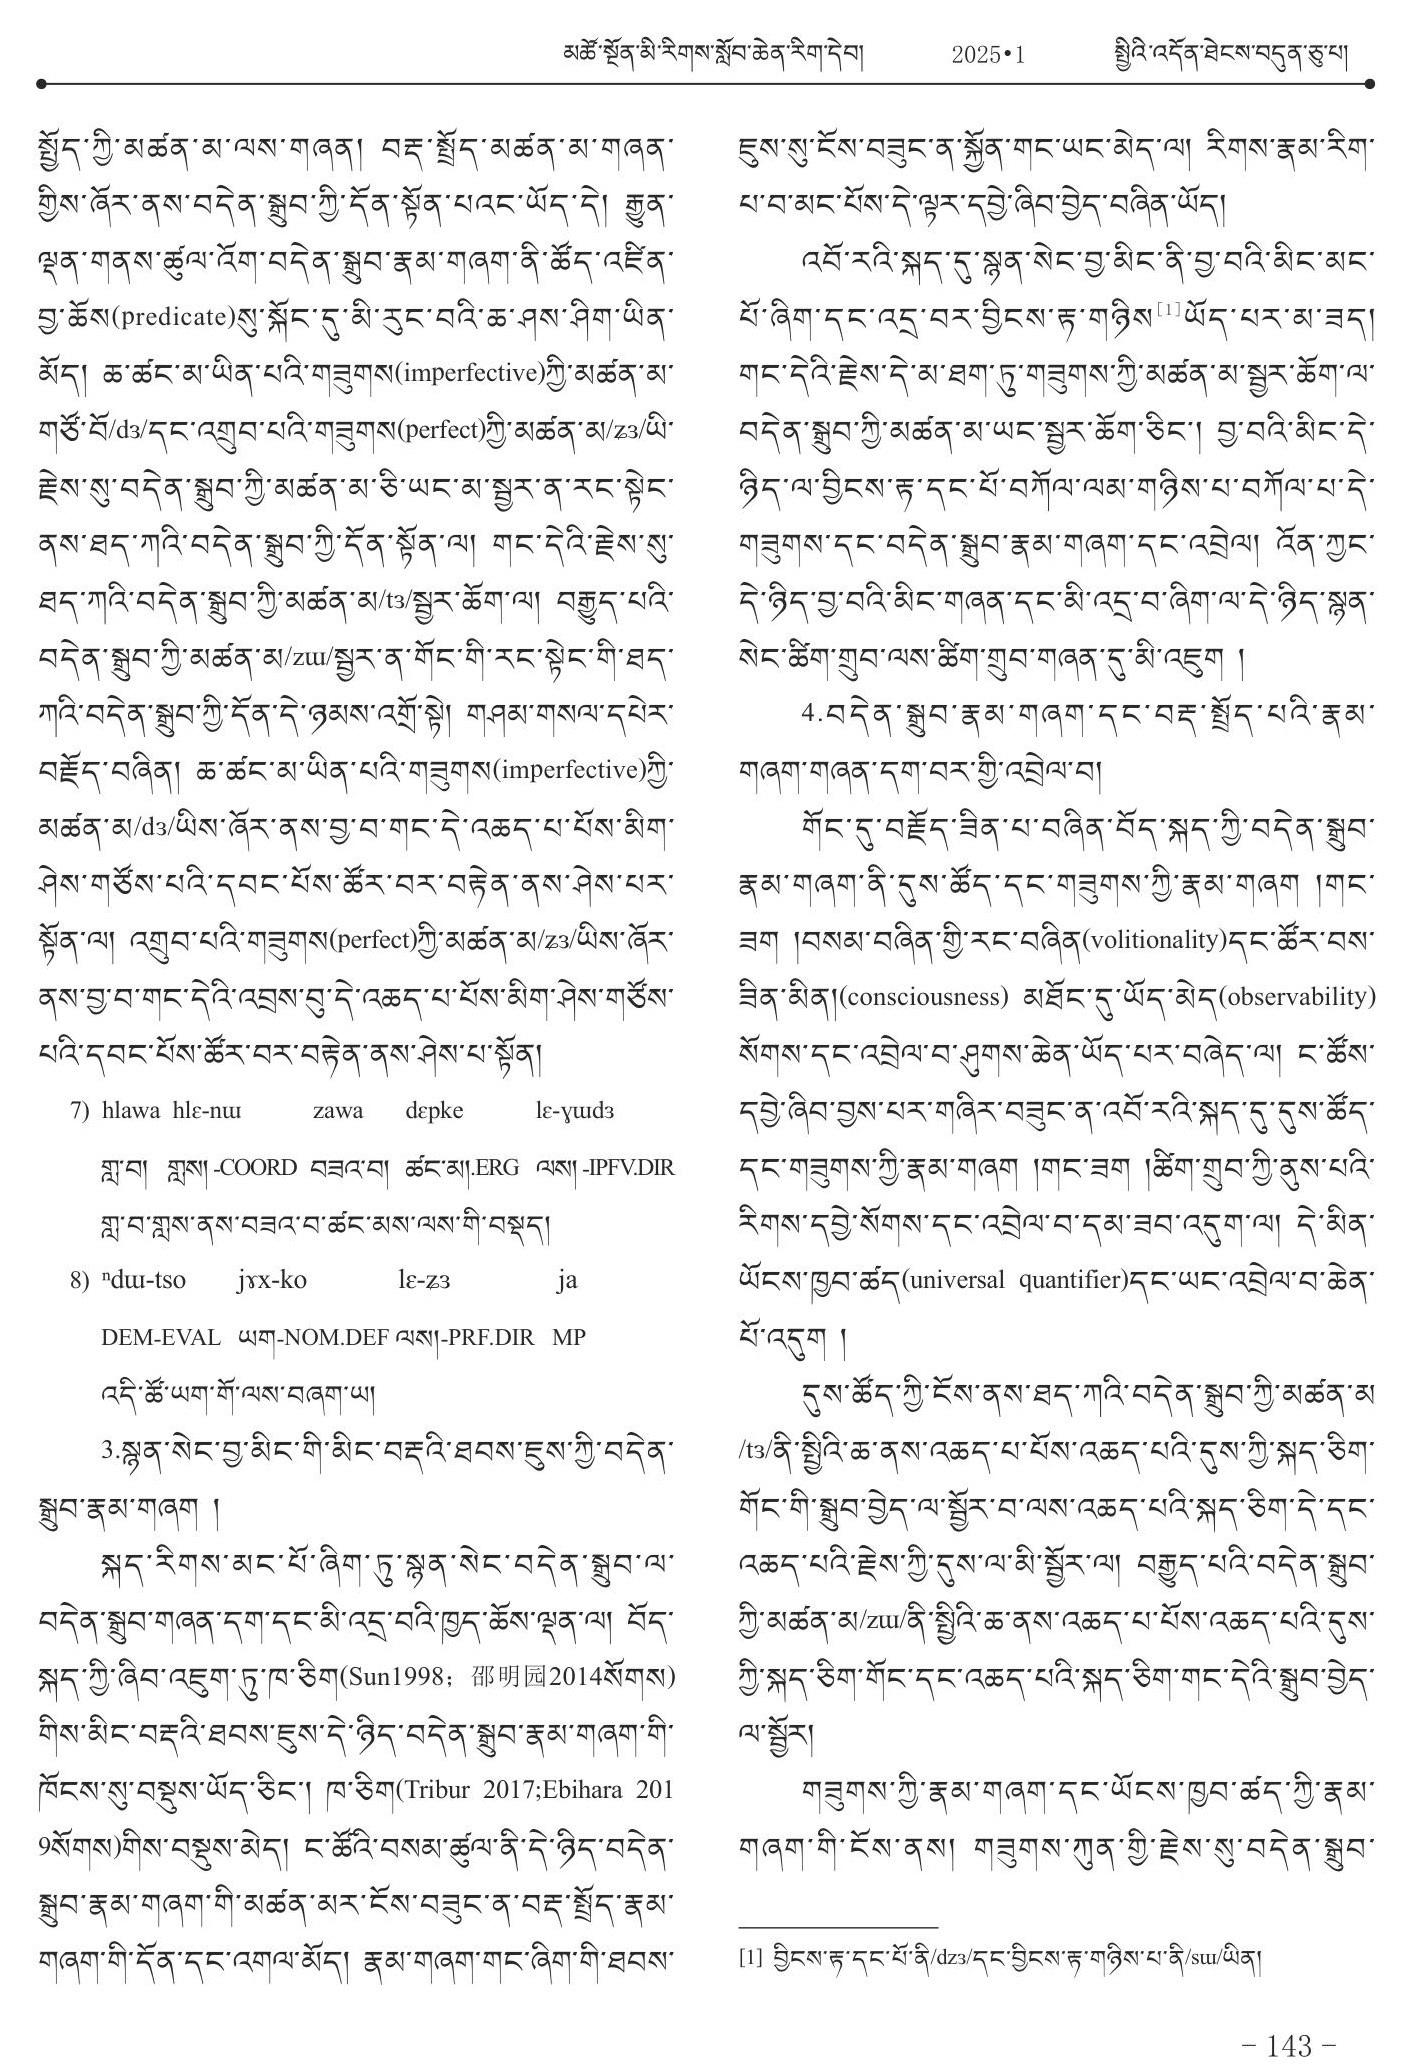 མཚོ་སྔོན་མི་རིགས་སློབ་ཆེན་རིག་དེབ། 2025•1 སྤྱིའི་འདོན་ཐེངས་བདུན་ཅུ་པ།
སྤྱོད་ཀྱི་མཚན་མ་ལས་གཞན། བརྡ་སྤྲོད་མཚན་མ་གཞན་
གྱིས་ཞོར་ནས་བདེན་སྒྲུབ་ཀྱི་དོན་སྟོན་པའང་ཡོད་དེ། རྒྱུན་
ལྡན་གནས་ཚུལ་འོག་བདེན་སྒྲུབ་རྣམ་གཞག་ནི་ཚོད་འཛིན་
བྱ་ཆོས(predicate)སུ་སྐོང་དུ་མི་རུང་བའི་ཆ་ཤས་ཤིག་ཡིན་
མོད། ཆ་ཚང་མ་ཡིན་པའི་གཟུགས(imperfective)ཀྱི་མཚན་མ་
གཙོ་བོ/dɜ/དང་འགྲུབ་པའི་གཟུགས(perfect)ཀྱི་མཚན་མ/ʑɜ/ཡི་
རྗེས་སུ་བདེན་སྒྲུབ་ཀྱི་མཚན་མ་ཅི་ཡང་མ་སྦྱར་ན་རང་སྟེང་
ནས་ཐད་ཀའི་བདེན་སྒྲུབ་ཀྱི་དོན་སྟོན་ལ། གང་དེའི་རྗེས་སུ་
ཐད་ཀའི་བདེན་སྒྲུབ་ཀྱི་མཚན་མ/tɜ/སྦྱར་ཆོག་ལ། བརྒྱུད་པའི་
བདེན་སྒྲུབ་ཀྱི་མཚན་མ/zɯ/སྦྱར་ན་གོང་གི་རང་སྟེང་གི་ཐད་
ཀའི་བདེན་སྒྲུབ་ཀྱི་དོན་དེ་ཉམས་འགྲོ་སྟེ། གཤམ་གསལ་དཔེར་
བརྗོད་བཞིན། ཆ་ཚང་མ་ཡིན་པའི་གཟུགས(imperfective)ཀྱི་
མཚན་མ/dɜ/ཡིས་ཞོར་ནས་བྱ་བ་གང་དེ་འཆད་པ་པོས་མིག་
ཤེས་གཙོས་པའི་དབང་པོས་ཚོར་བར་བརྟེན་ནས་ཤེས་པར་
སྟོན་ལ། འགྲུབ་པའི་གཟུགས(perfect)ཀྱི་མཚན་མ/ʑɜ/ཡིས་ཞོར་
ནས་བྱ་བ་གང་དེའི་འབྲས་བུ་དེ་འཆད་པ་པོས་མིག་ཤེས་གཙོས་
པའི་དབང་པོས་ཚོར་བར་བརྟེན་ནས་ཤེས་པ་སྟོན།
7) hlawa hlɛ-nɯ zawa dɛpke lɛ-ɣɯdɜ
གླ་བ། གླས། -COORD བཟའ་བ། ཚང་མ།.ERG ལས། -IPFV.DIR
གླ་བ་གླས་ནས་བཟའ་བ་ཚང་མས་ལས་གི་བསྡད།
8) ⁿdɯ-tso jɤx-ko lɛ-ʑɜ ja
DEM-EVAL ཡག-NOM.DEF ལས།-PRF.DIR MP
འདི་ཚོ་ཡག་གོ་ལས་བཞག་ཡ།
3.སྙན་སེང་བྱ་མིང་གི་མིང་བརྡའི་ཐབས་ཇུས་ཀྱི་བདེན་
སྒྲུབ་རྣམ་གཞག །
སྐད་རིགས་མང་པོ་ཞིག་ཏུ་སྙན་སེང་བདེན་སྒྲུབ་ལ་
བདེན་སྒྲུབ་གཞན་དག་དང་མི་འདྲ་བའི་ཁྱད་ཆོས་ལྡན་ལ། བོད་
སྐད་ཀྱི་ཞིབ་འཇུག་ཏུ་ཁ་ཅིག(Sun1998；邵明园2014སོགས)
གིས་མིང་བརྡའི་ཐབས་ཇུས་དེ་ཉིད་བདེན་སྒྲུབ་རྣམ་གཞག་གི་
ཁོངས་སུ་བསྡུས་ཡོད་ཅིང་། ཁ་ཅིག(Tribur 2017;Ebihara 201
9སོགས)གིས་བསྡུས་མེད། ང་ཚོའི་བསམ་ཚུལ་ནི་དེ་ཉིད་བདེན་
སྒྲུབ་རྣམ་གཞག་གི་མཚན་མར་ངོས་བཟུང་ན་བརྡ་སྤྲོད་རྣམ་
གཞག་གི་དོན་དང་འགལ་མོད། རྣམ་གཞག་གང་ཞིག་གི་ཐབས་
ཇུས་སུ་ངོས་བཟུང་ན་སྐྱོན་གང་ཡང་མེད་ལ། རིགས་རྣམ་རིག་
པ་བ་མང་པོས་དེ་ལྟར་དབྱེ་ཞིབ་བྱེད་བཞིན་ཡོད།
འབོ་རའི་སྐད་དུ་སྙན་སེང་བྱ་མིང་ནི་བྱ་བའི་མིང་མང་
པོ་ཞིག་དང་འདྲ་བར་བྱིངས་རྟ་གཉིས[1]ཡོད་པར་མ་ཟད།
གང་དེའི་རྗེས་དེ་མ་ཐག་ཏུ་གཟུགས་ཀྱི་མཚན་མ་སྦྱར་ཆོག་ལ་
བདེན་སྒྲུབ་ཀྱི་མཚན་མ་ཡང་སྦྱར་ཆོག་ཅིང་། བྱ་བའི་མིང་དེ་
ཉིད་ལ་བྱིངས་རྟ་དང་པོ་བཀོལ་ལམ་གཉིས་པ་བཀོལ་པ་དེ་
གཟུགས་དང་བདེན་སྒྲུབ་རྣམ་གཞག་དང་འབྲེལ། འོན་ཀྱང་
དེ་ཉིད་བྱ་བའི་མིང་གཞན་དང་མི་འདྲ་བ་ཞིག་ལ་དེ་ཉིད་སྙན་
སེང་ཚིག་གྲུབ་ལས་ཚིག་གྲུབ་གཞན་དུ་མི་འཇུག །
4.བདེན་སྒྲུབ་རྣམ་གཞག་དང་བརྡ་སྤྲོད་པའི་རྣམ་
གཞག་གཞན་དག་བར་གྱི་འབྲེལ་བ།
གོང་དུ་བརྗོད་ཟིན་པ་བཞིན་བོད་སྐད་ཀྱི་བདེན་སྒྲུབ་
རྣམ་གཞག་ནི་དུས་ཚོད་དང་གཟུགས་ཀྱི་རྣམ་གཞག །གང་
ཟག །བསམ་བཞིན་གྱི་རང་བཞིན(volitionality)དང་ཚོར་བས་
ཟིན་མིན།(consciousness) མཐོང་དུ་ཡོད་མེད(observability)
སོགས་དང་འབྲེལ་བ་ཤུགས་ཆེན་ཡོད་པར་བཞེད་ལ། ང་ཚོས་
དབྱེ་ཞིབ་བྱས་པར་གཞིར་བཟུང་ན་འབོ་རའི་སྐད་དུ་དུས་ཚོད་
དང་གཟུགས་ཀྱི་རྣམ་གཞག །གང་ཟག །ཚིག་གྲུབ་ཀྱི་ནུས་པའི་
རིགས་དབྱེ་སོགས་དང་འབྲེལ་བ་དམ་ཟབ་འདུག་ལ། དེ་མིན་
ཡོངས་ཁྱབ་ཚད(universal quantifier)དང་ཡང་འབྲེལ་བ་ཆེན་
པོ་འདུག །
དུས་ཚོད་ཀྱི་ངོས་ནས་ཐད་ཀའི་བདེན་སྒྲུབ་ཀྱི་མཚན་མ
/tɜ/ནི་སྤྱིའི་ཆ་ནས་འཆད་པ་པོས་འཆད་པའི་དུས་ཀྱི་སྐད་ཅིག་
གོང་གི་སྒྲུབ་བྱེད་ལ་སྦྱོར་བ་ལས་འཆད་པའི་སྐད་ཅིག་དེ་དང་
འཆད་པའི་རྗེས་ཀྱི་དུས་ལ་མི་སྦྱོར་ལ། བརྒྱུད་པའི་བདེན་སྒྲུབ་
ཀྱི་མཚན་མ/zɯ/ནི་སྤྱིའི་ཆ་ནས་འཆད་པ་པོས་འཆད་པའི་དུས་
ཀྱི་སྐད་ཅིག་གོང་དང་འཆད་པའི་སྐད་ཅིག་གང་དེའི་སྒྲུབ་བྱེད་
ལ་སྦྱོར།
གཟུགས་ཀྱི་རྣམ་གཞག་དང་ཡོངས་ཁྱབ་ཚད་ཀྱི་རྣམ་
གཞག་གི་ངོས་ནས། གཟུགས་ཀུན་གྱི་རྗེས་སུ་བདེན་སྒྲུབ་
[1] བྱིངས་རྟ་དང་པོ་ནི/dzɜ/དང་བྱིངས་རྟ་གཉིས་པ་ནི/sɯ/ཡིན།
- 143 -